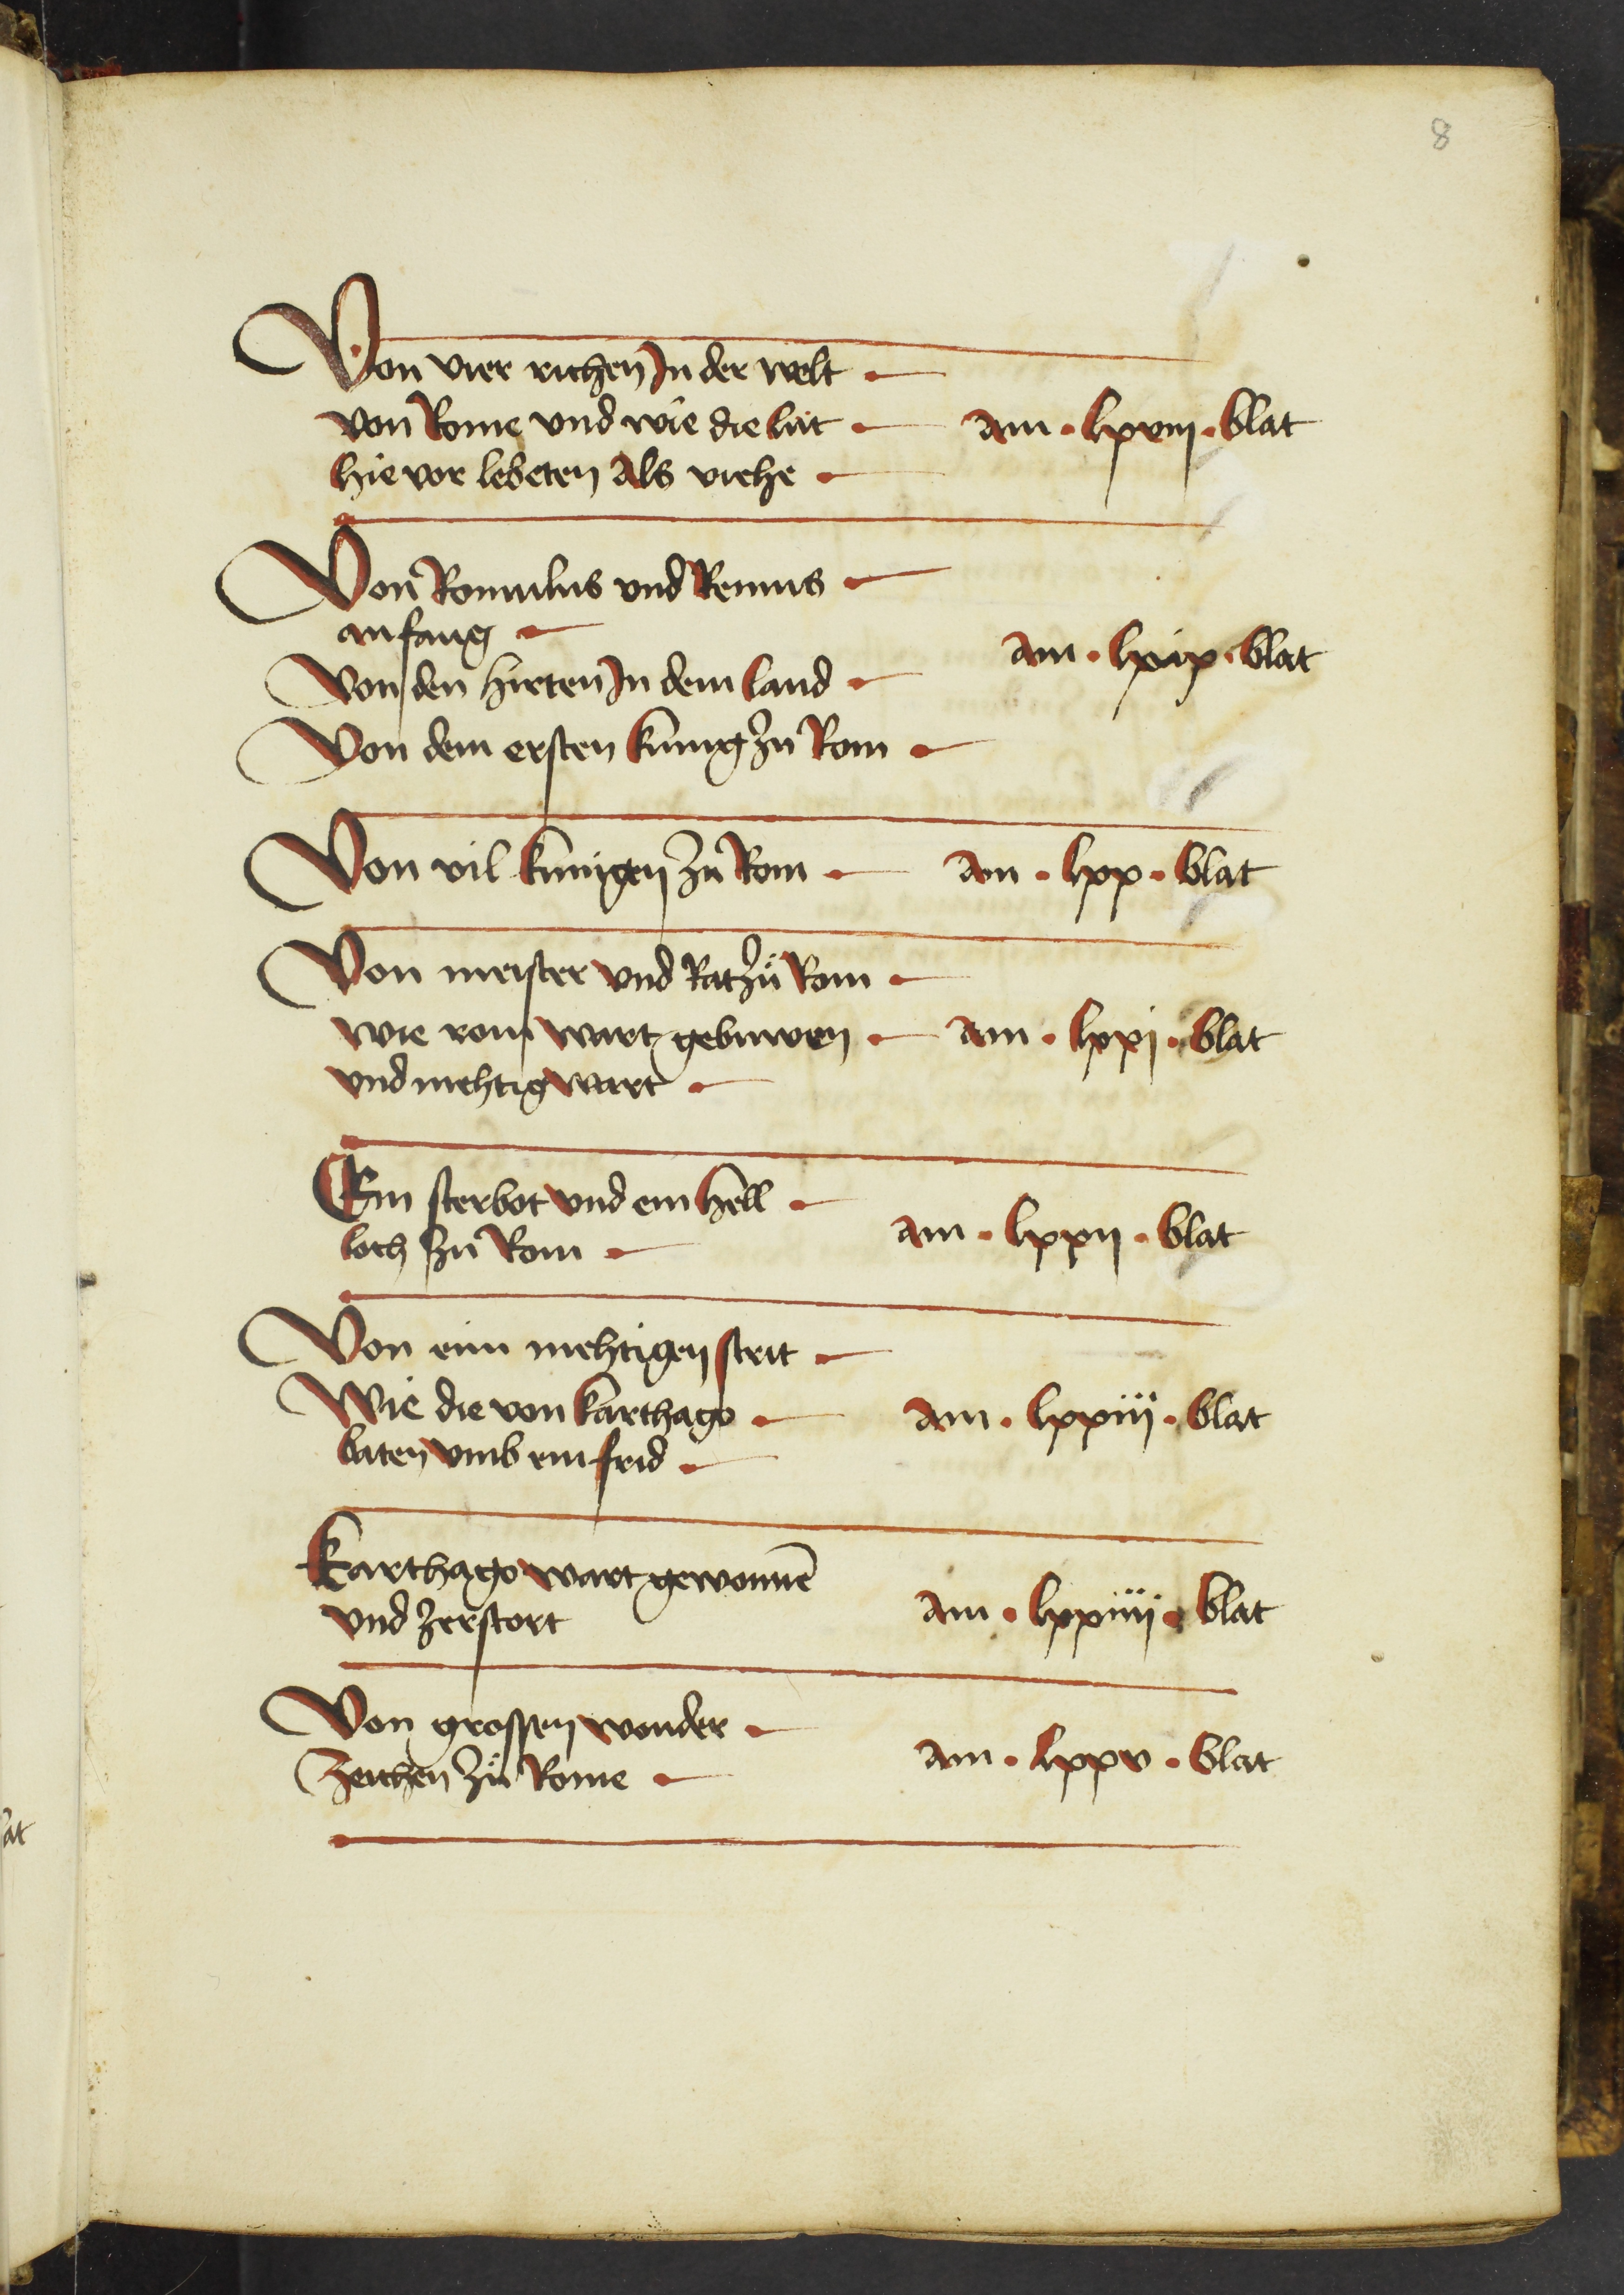 8
Von vier richen In der welt
von Rome und wie die lüt am · lxviij · blat
hie vor lebeten Als viehe
Von Romulus und Remus
anfang
am · lxix · blat
Von den hirten In dem land
Von dem ersten kunig zu Rom
Von vil kunigen zu Rom am · lxx · blat
Von meister und Rat zů Rom
wie rom wart gebuwen am · lxxj · blat
und mehtig wart
Ein sterbot und ein hell
loch zu Rom am · lxxij · blat
Von eim mehtigen strit
Wie die von karthago am · lxxiij · blat
baten umb ein frid
Karthago wart gewonnē
und zerstort am · lxxiiij · blat
Von grossen wonder
zeichen zů Rome am · lxxv · blat